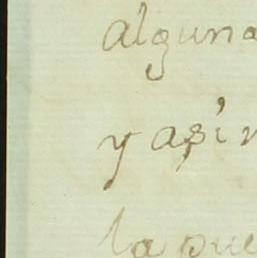 alguna
y asi
la que